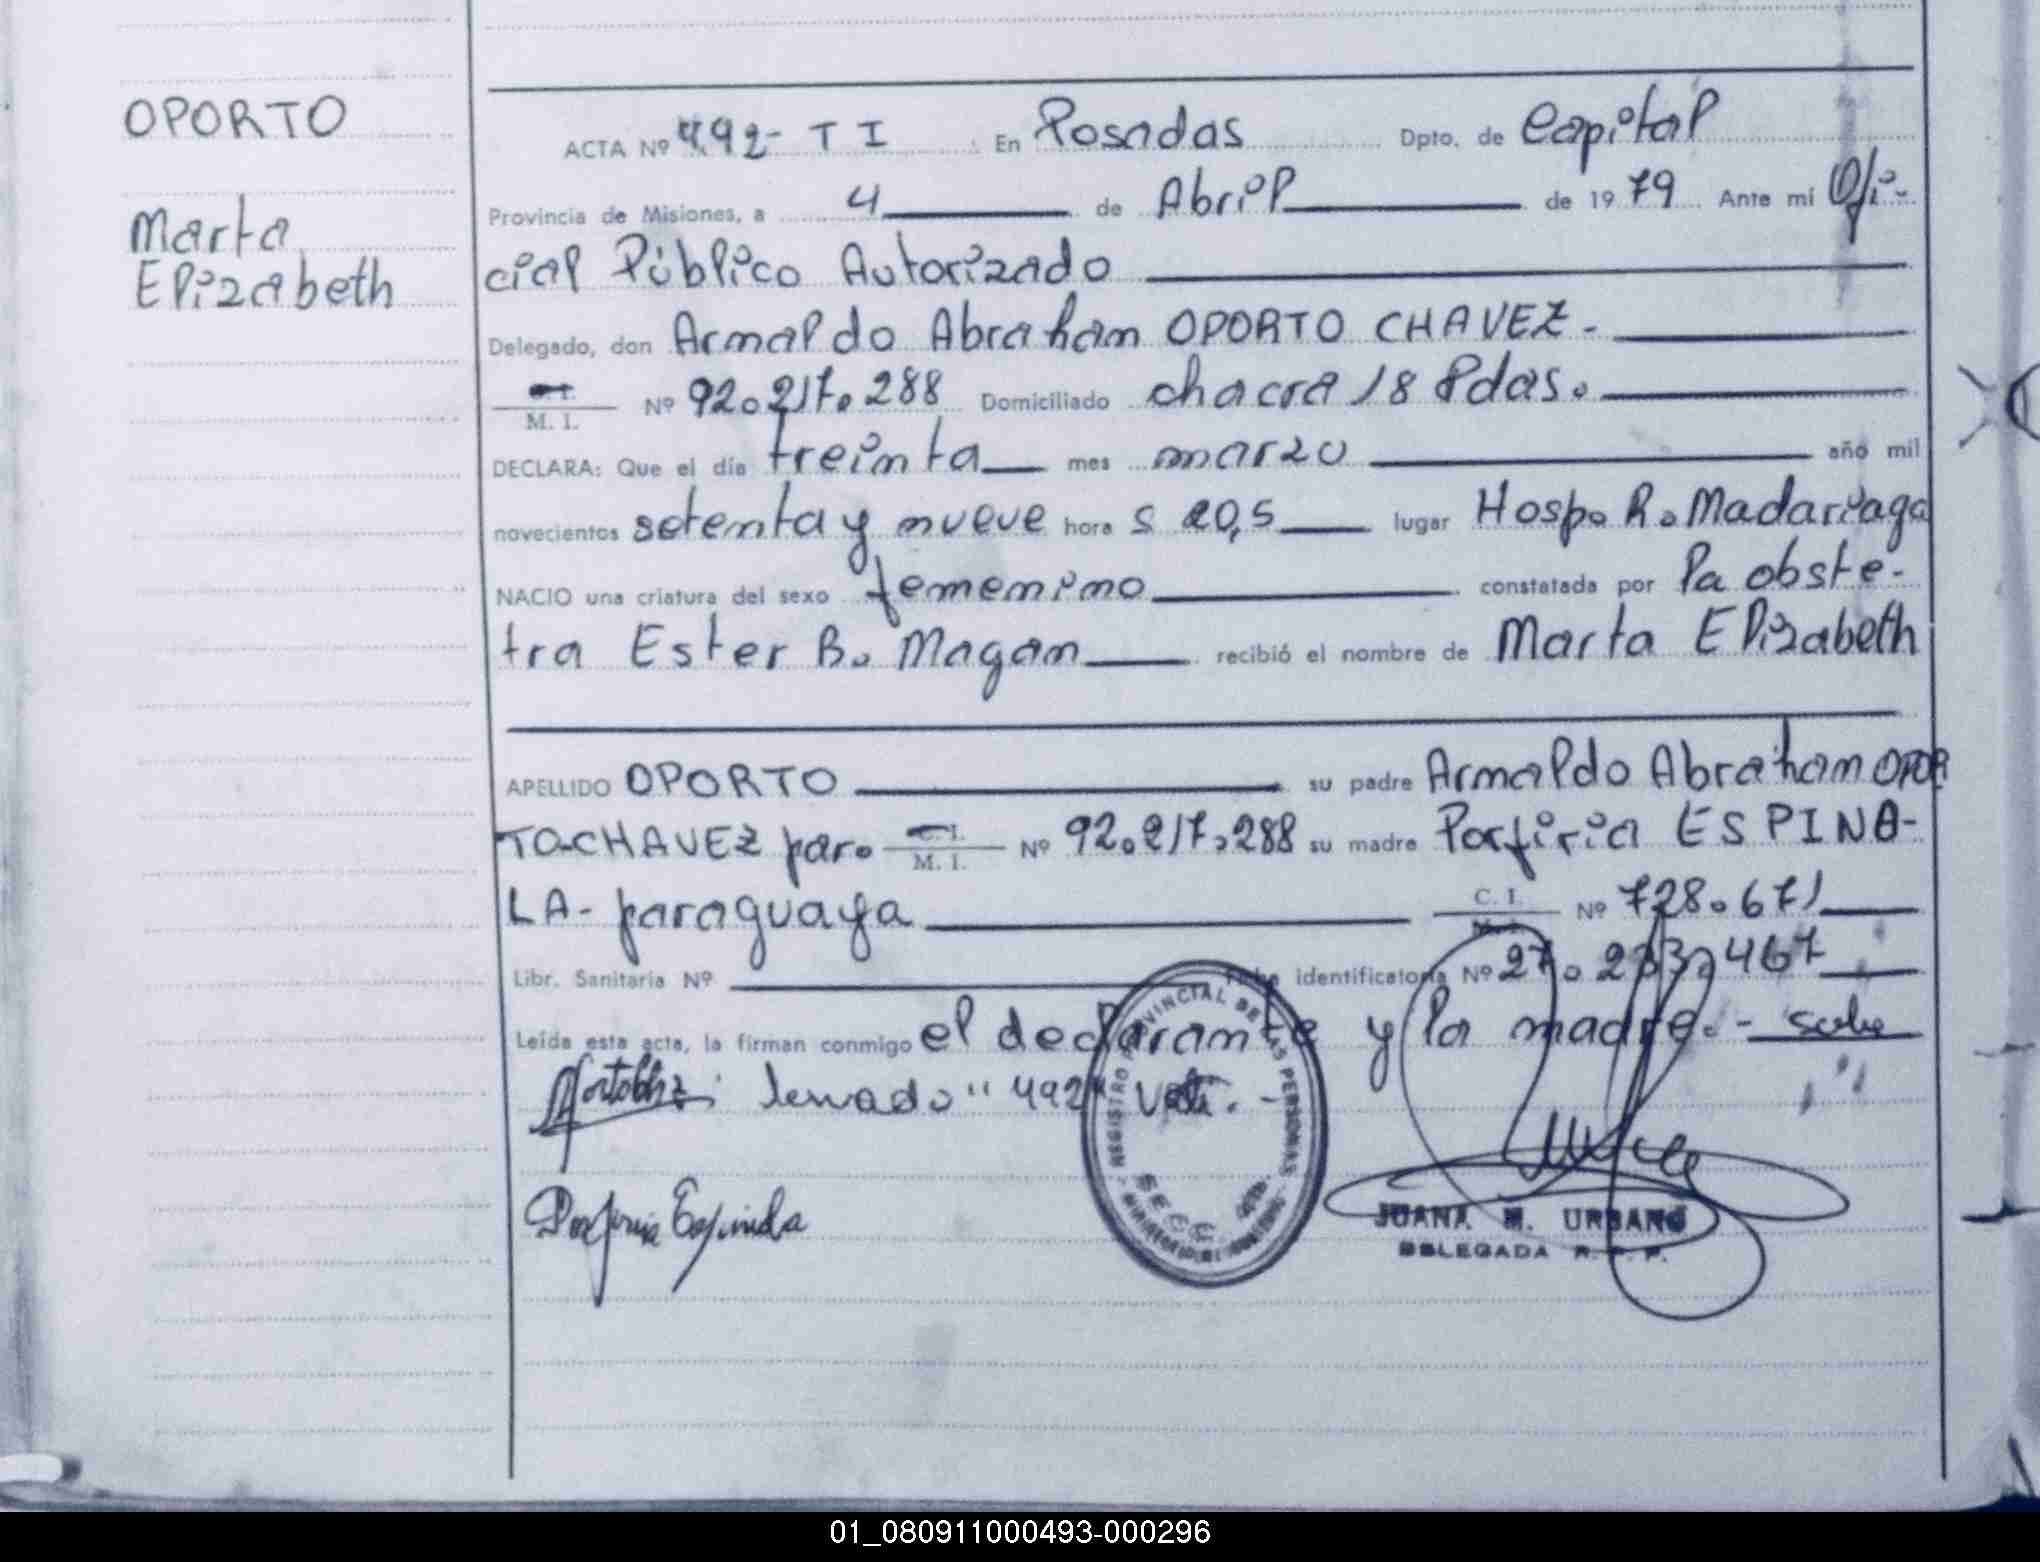 OPORTO
Marta
Elizabeth
ACTA Nº 492- T I En Posadas Dpto. de Capital
Provincia de Misiones, a 4 de Abril de 19 79 Ante mí Ofi-
cial Público Autorizado
Delegado, don Arnaldo Abraham OPORTO CHAVEZ-
M. I. Nº 92.217.288 Domiciliado chacra 18 Pdas.
DECLARA: Que el día treinta mes marzo año mil
novecientos setenta y nueve hora s 20,5 lugar Hosp. R. Madariaga
NACIO una criatura del sexo femenino constatada por la obste-
tra Ester B. Magan recibió el nombre de Marta Elizabeth
APELLIDO OPORTO su padre Arnaldo Abraham OPOR
TO-CHAVEZ par. C. I. M. I. Nº 92.217.288 su madre Porfiria ESPINO-
LA- paraguaya C. I. Nº 728.671
Libr. Sanitaria Nº Ficha identificatoria Nº 27.233.467
Leída esta acta, la firman conmigo el declarante y la madre.- sobre
"492" Vale.-
Porfiria Espinola
REGISTRO PROVINCIAL DE LAS PERSONAS
SECC.
JUANA M. URBANO
DELEGADA R. P. P.
01_080911000493-000296